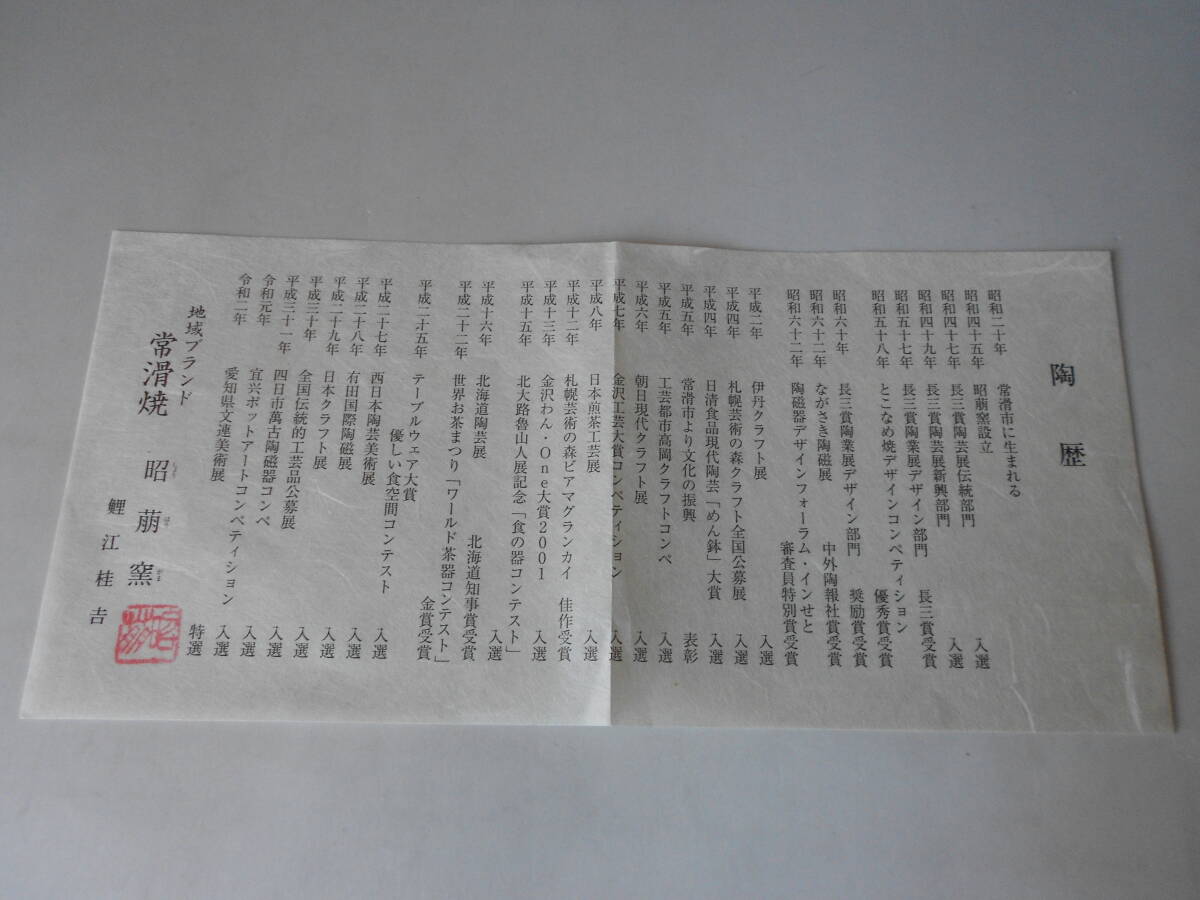 陶歴
昭和二十年 常滑市に生まれる
昭和四十五年 昭萠窯設立
昭和四十七年 長三賞陶芸展伝統部門 入選
昭和四十九年 長三賞陶芸展新興部門 入選
昭和五十七年 長三賞陶業展デザイン部門 長三賞受賞
昭和五十八年 とこなめ焼デザインコンペティション
優秀賞受賞
昭和六十年 長三賞陶業展デザイン部門 奨励賞受賞
昭和六十二年 ながさき陶磁展 中外陶報社賞受賞
昭和六十二年 陶磁器デザインフォーラム・インせと
審査員特別賞受賞
平成二年 伊丹クラフト展 入選
平成四年 札幌芸術の森クラフト全国公募展 入選
平成四年 日清食品現代陶芸「めん鉢」大賞 入選
平成五年 常滑市より文化の振興 表彰
平成五年 工芸都市高岡クラフトコンペ 入選
平成六年 朝日現代クラフト展 入選
平成七年 金沢工芸大賞コンペティション 入選
平成八年 日本煎茶工芸展 入選
平成十二年 札幌芸術の森ビアマグランカイ 佳作受賞
平成十三年 金沢わん・One大賞2001 入選
平成十五年 北大路魯山人展記念「食の器コンテスト」
入選
平成十六年 北海道陶芸展 北海道知事賞受賞
平成二十二年 世界お茶まつり「ワールド茶器コンテスト」
金賞受賞
平成二十五年 テーブルウェア大賞
優しい食空間コンテスト 入選
平成二十七年 西日本陶芸美術展 入選
平成二十八年 有田国際陶磁展 入選
平成二十九年 日本クラフト展 入選
平成三十年 全国伝統的工芸品公募展 入選
平成三十一年 四日市萬古陶磁器コンペ 入選
令和元年 宜兴ポットアートコンペティション 入選
令和二年 愛知県文連美術展 特選
地域ブランド
常滑焼 昭萠窯
鯉江桂吉